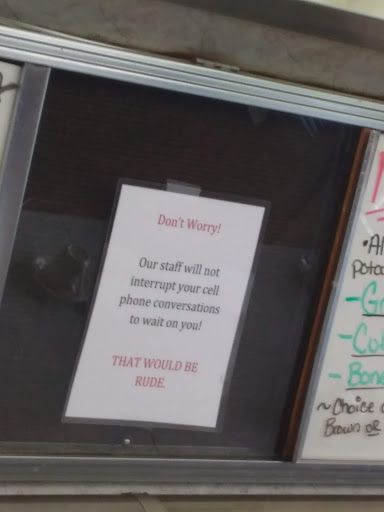 Don't Worry!
Our staff will not
interrupt your cell
phone conversations
to wait on you!
THAT WOULD BE
RUDE.
~Choice
Brown or